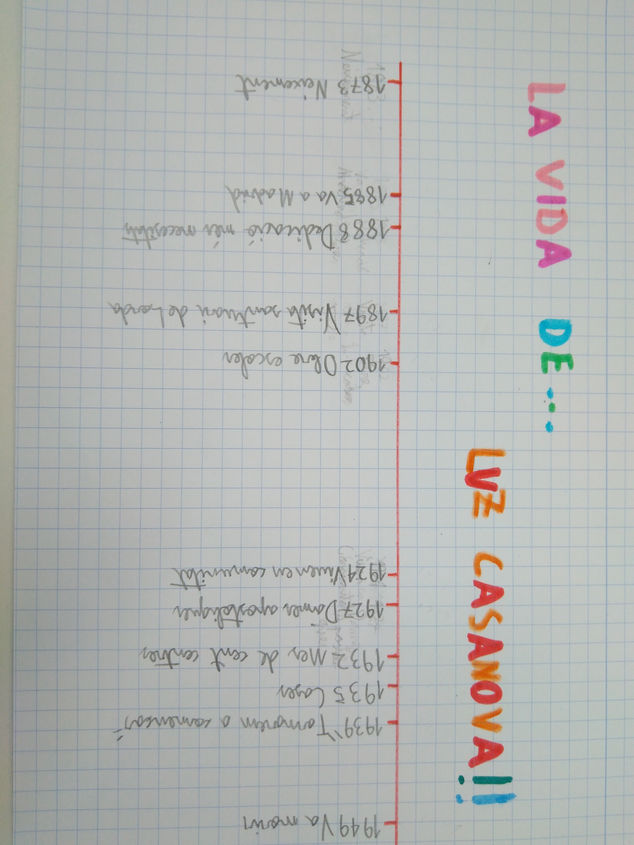 LA VIDA DE...
LUZ CASANOVA!!
1873 Neixement
1885 Va a Madrid
1888 Dedicació més necesitats
1897 Visita santuari de Lorda
1902 Obre escoles
1924 Viuen en comunitat
1927 Dames apostoliques
1932 Mes de cent centres
1935 Cases
1939 "Tornarem a comensar"
1949 Va morir